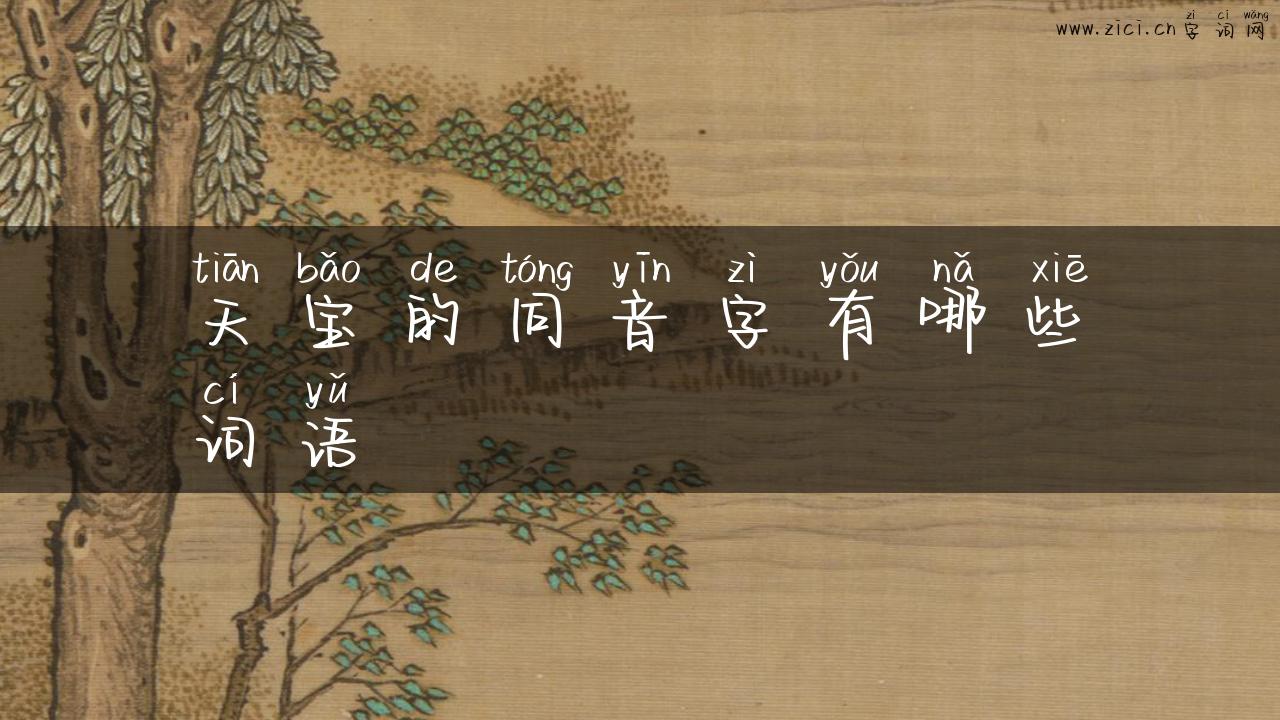 zì cí wǎng
www.zici.cn 字词网
tiān bǎo de tóng yīn zì yǒu nǎ xiē
天宝的同音字有哪些
cí yǔ
词语